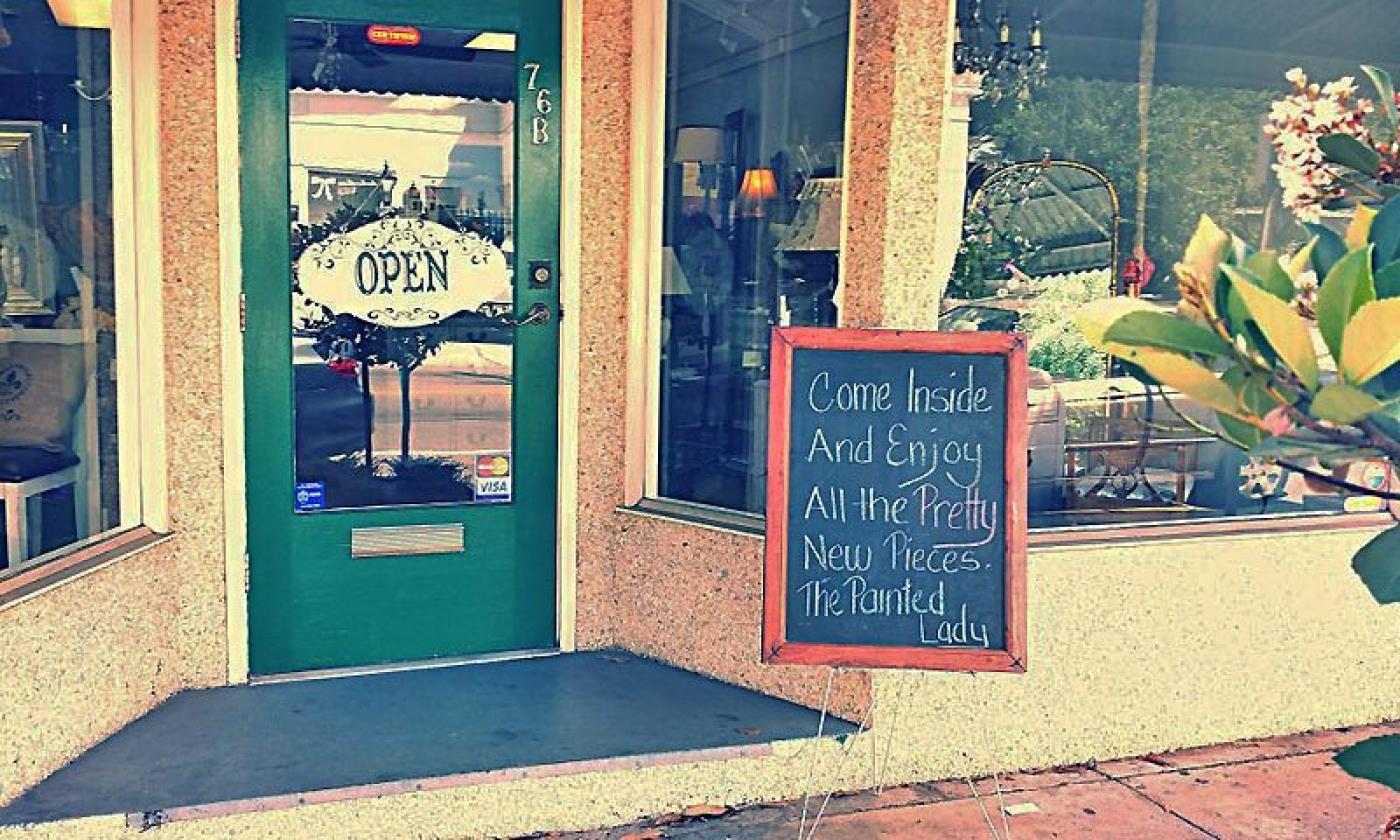 CERTIFIED
76B
OPEN
MasterCard
VISA
Come Inside
And Enjoy
All the Pretty
New Pieces.
The Painted
Lady